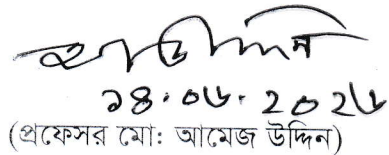 ১৪.০৬.২০২৬
(প্রফেসর মো: আমেজ উদ্দিন)